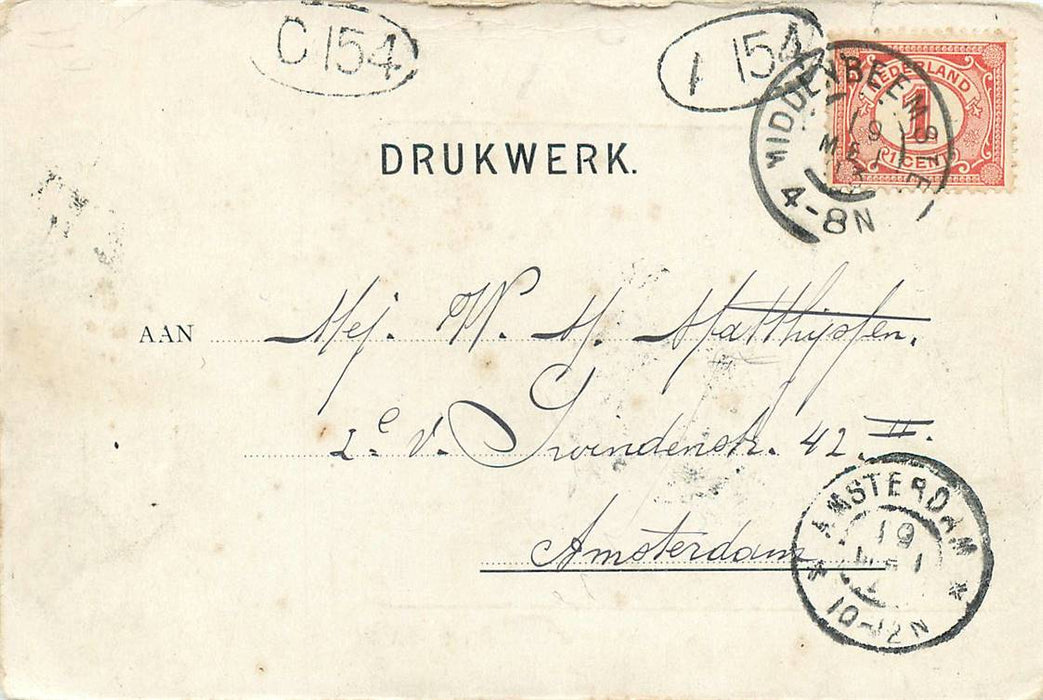 C 154
154
NEDERLAND
1
1 CENT
MIDDENBEEMSTER
19
MEI
4-8N
DRUKWERK.
AAN Mej. W. M. Matthijssen.
2e v. Swindenstr. 42 II.
Amsterdam
AMSTERDAM
19
MEI
10-12N